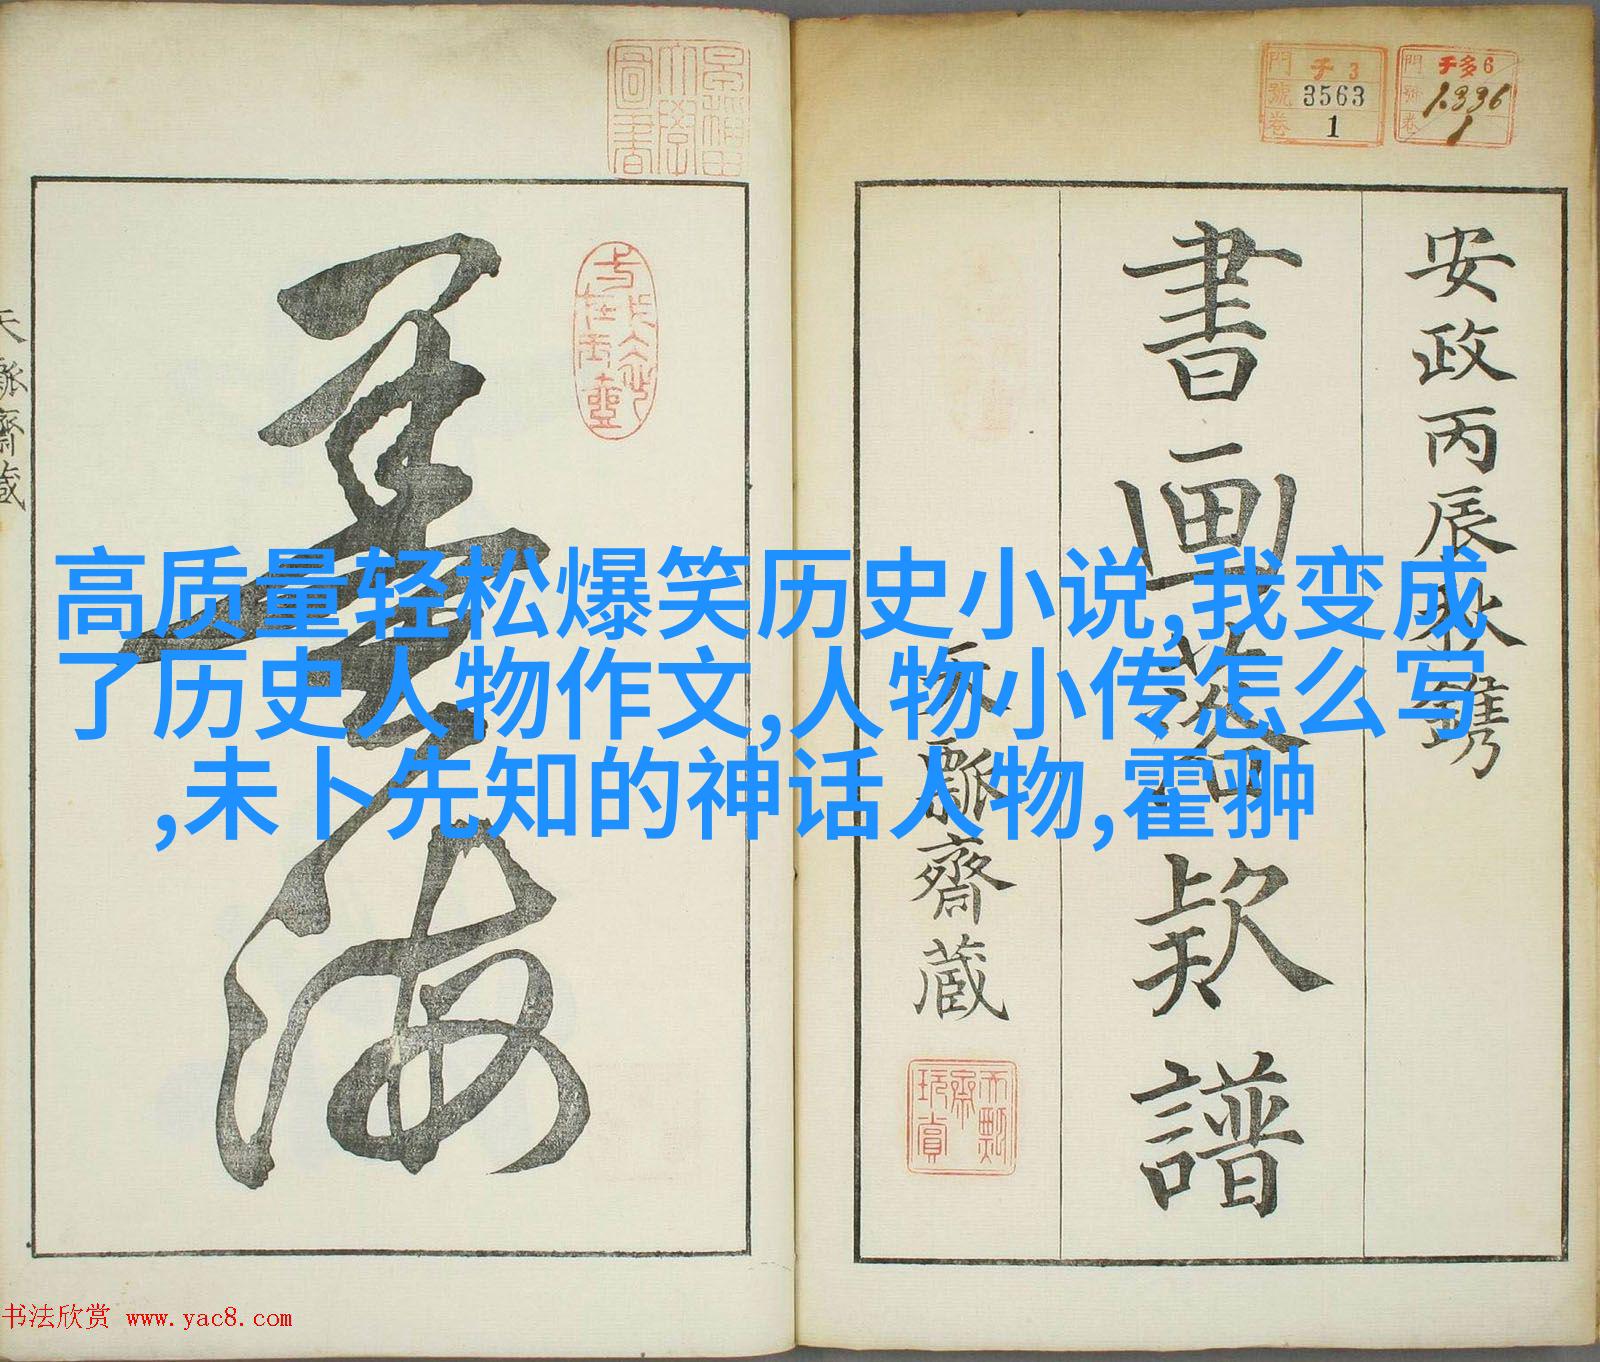 門 チ 3
號 3563
卷 1
門 チ多6
號 1336
卷 1
安政丙辰秋鐫
書画落款譜
天瓢齋蔵
墨海
高质量轻松爆笑历史小说,我变成
了历史人物作文,人物小传怎么写
,未卜先知的神话人物,霍翀
书法欣赏 www.yac8.com